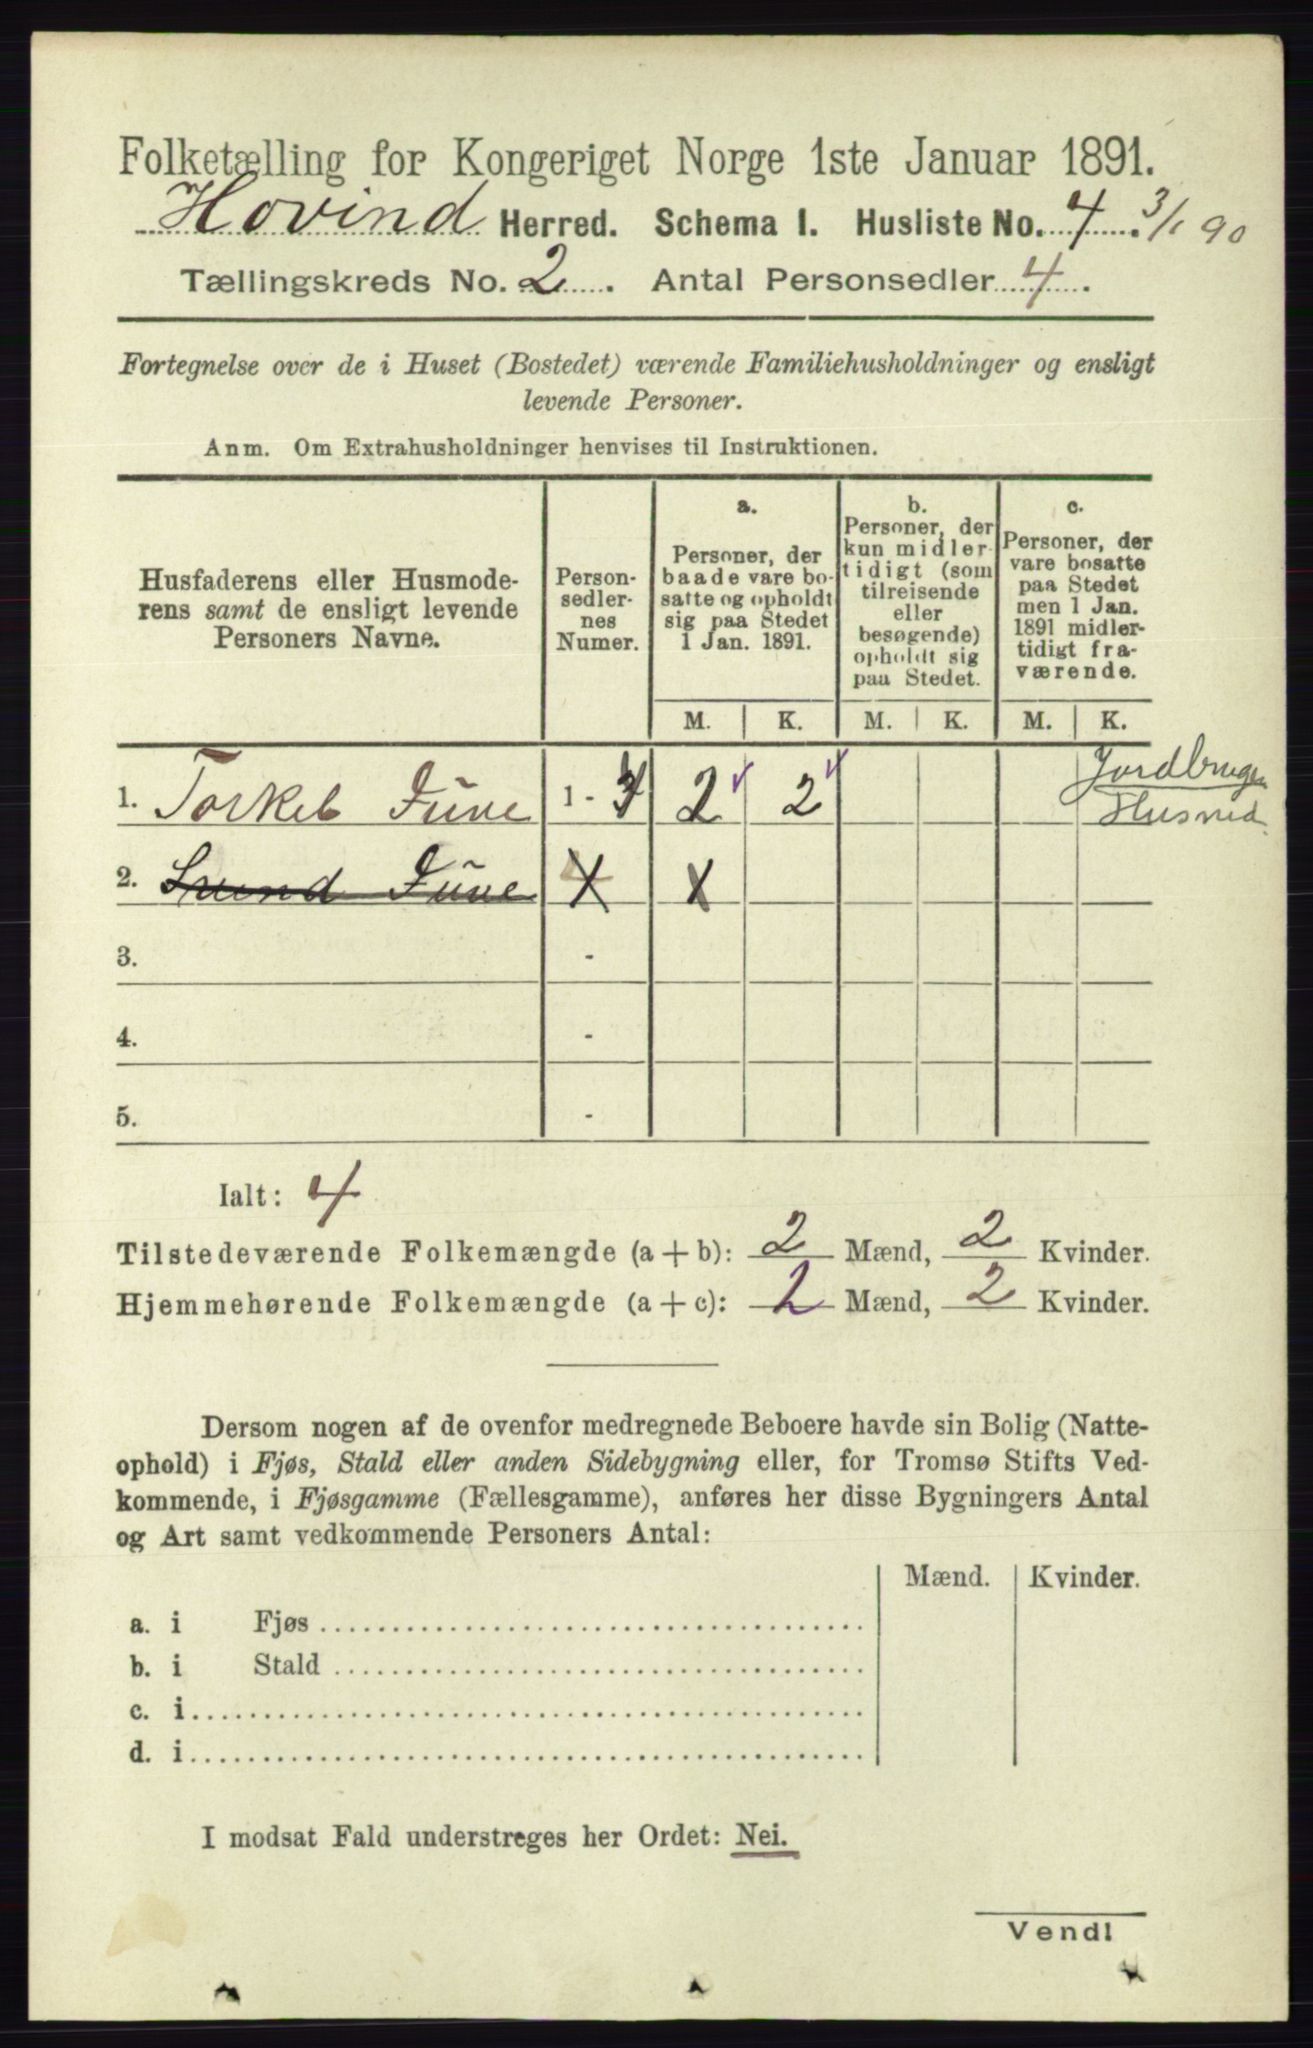 Folketælling for Kongeriget Norge 1ste Januar 1891.
Hovind Herred. Schema I. Husliste No. 4. 3/1 90
Tællingskreds No. 2. Antal Personsedler 4.
Fortegnelse over de i Huset (Bostedet) værende Familiehusholdninger og ensligt
levende Personer.
Anm. Om Extrahusholdninger henvises til Instruktionen.
Husfaderens eller Husmode-
rens samt de ensligt levende
Personers Navne.
Person-
sedler-
nes
Numer.
a.
Personer, der
baade vare bo-
satte og opholdt
sig paa Stedet
1 Jan. 1891.
b.
Personer, der
kun midler-
tidigt (som
tilreisende
eller
besøgende)
opholdt sig
paa Stedet.
c.
Personer, der
vare bosatte
paa Stedet
men 1 Jan.
1891 midler-
tidigt fra-
værende.
M. K. M. K. M. K.
1. Torkel Juve 1 - 2 2
Jordbruger
Husmd.
2. Juve X X
3. -
4. -
5. -
Ialt: 4
Tilstedeværende Folkemængde (a + b): 2 Mænd, 2 Kvinder.
Hjemmehørende Folkemængde (a + c): 2 Mænd, 2 Kvinder.
Dersom nogen af de ovenfor medregnede Beboere havde sin Bolig (Natte-
ophold) i Fjøs, Stald eller anden Sidebygning eller, for Tromsø Stifts Ved-
kommende, i Fjøsgamme (Fællesgamme), anføres her disse Bygningers Antal
og Art samt vedkommende Personers Antal:
Mænd. Kvinder.
a. i Fjøs
b. i Stald
c. i
d. i
I modsat Fald understreges her Ordet: Nei.
Vend!